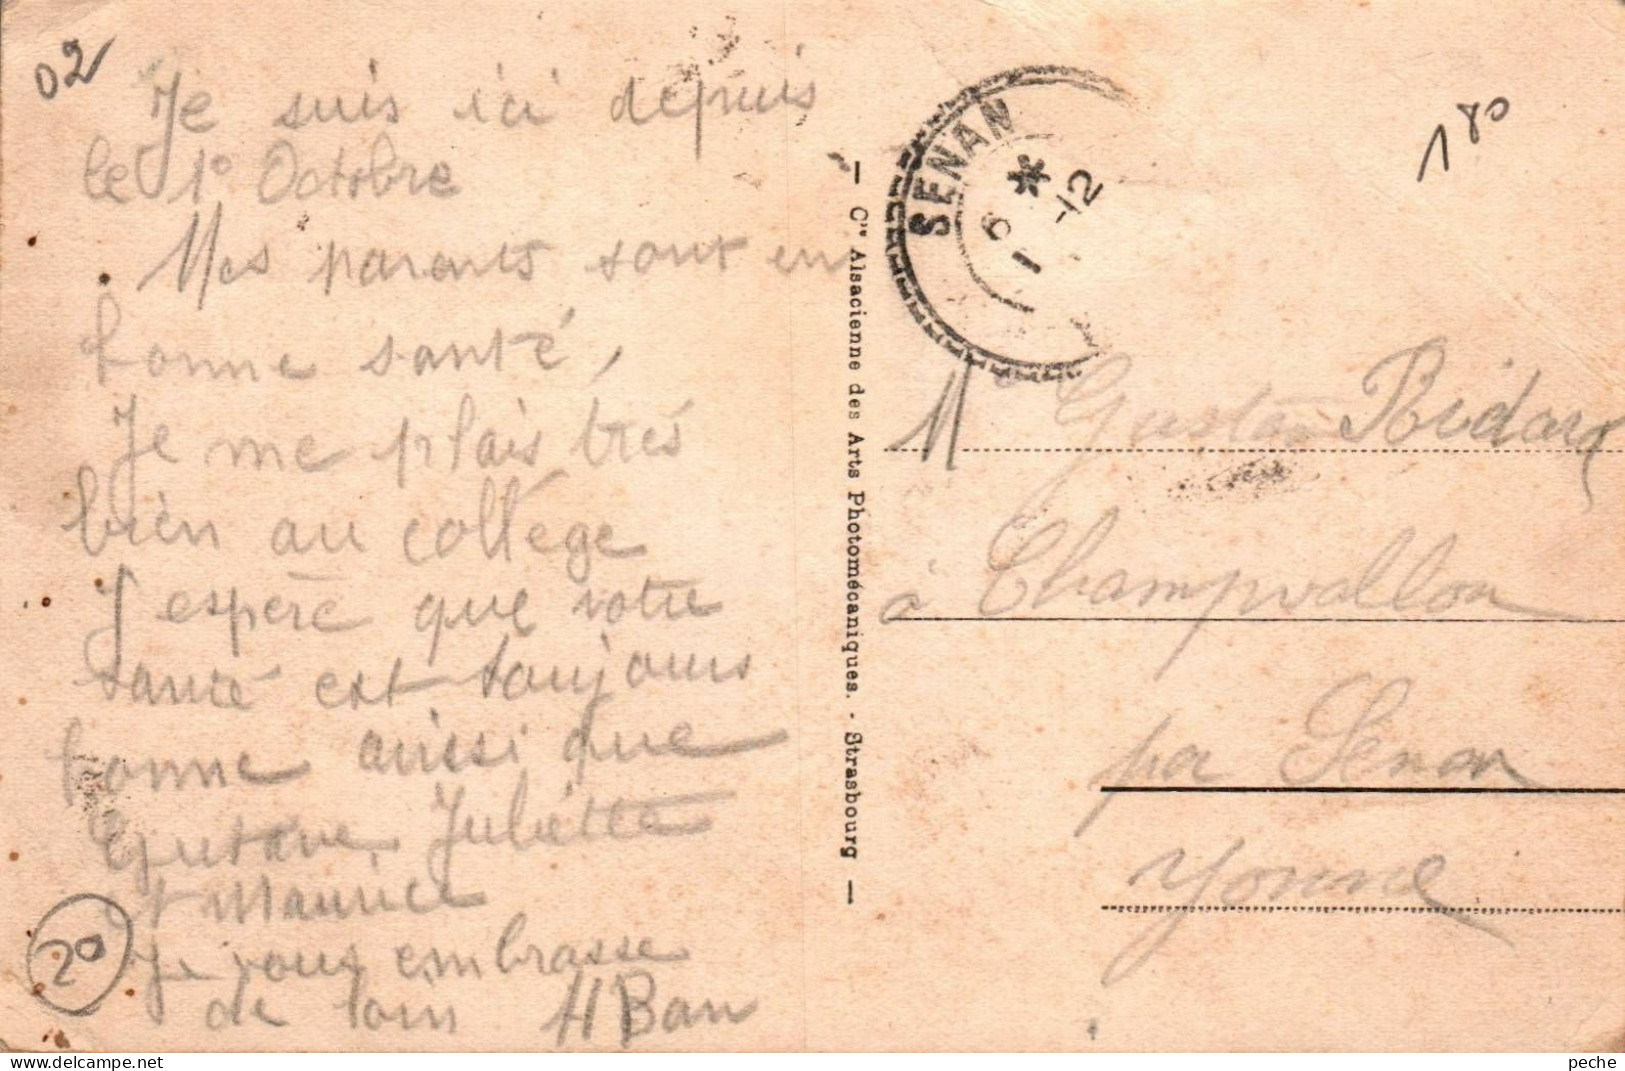 02
Je suis ici depuis
le 1° Octobre
Mes parents sont en
bonne santé,
Je me plais très
bien au collège
J'espère que votre
santé est toujours
bonne aussi que
Gustave, Juliette
et Maurice
Je vous embrasse
de loin H Ban
20
— Cie Alsacienne des Arts Photomécaniques. - Strasbourg —
SENAN
*
16 -12
180
M Gustave Ridard
à Champvallon
par Senan
Yonne
peche